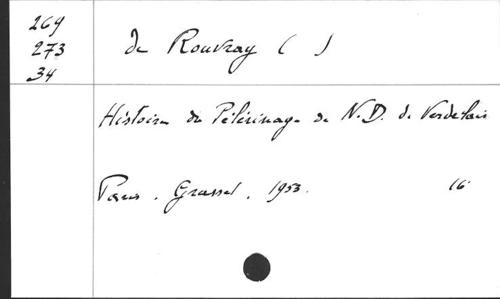 269
273
34
de Rouvray ( )
Histoire du Pèlerinage de N.D. de Verdelais
Paris. Grasset. 1953. 16